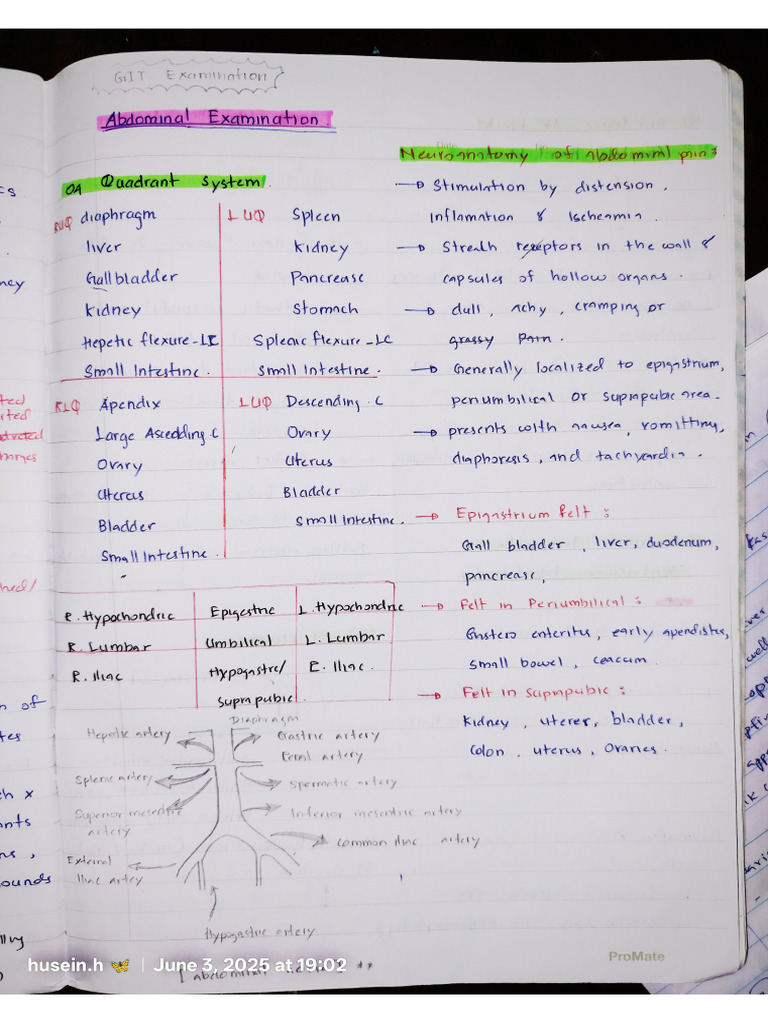 GIT Examination
Abdominal Examination
Quadrant system
RUQ diaphragm
liver
Gallbladder
Kidney
Hepetic flexure-LI
Small Intestine.
LUQ Spleen
Kidney
Pancrease
Stomach
Spleaic flexure-LC
Small Intestine.
RLQ Apendix
Large Ascedding C
Ovary
Uterus
Bladder
Small Intestine.
LUQ Descending.C
Ovary
Uterus
Bladder
Small Intestine.
R. Hypochondric Epigestric L. Hypochondric
R. Lumbar Umbilical L. Lumbar
R. Iliac Hypogastre/ E. Iliac.
suprapubic
Diaphragm
Hepatic artery
Splenic artery
Superior mesentric
artery
External
Iliac artey
Hypogastric artery
Gastric artery
Renal artery
Spermatic artery
Inferior mesentric artery
Common iliac artery
Neuroanatomy of abdominal pain:
→ Stimulation by distension.
Inflamation & Ischeamia.
→ Streath receptors in the wall &
capsules of hollow organs.
→ dull, achy, cramping or
grassy Pain.
→ Generally localized to epigastrium,
periumbilical or suprapubic area.
→ presents with nausea, vomitting,
diaphoresis, and tachycardia.
→ Epigastrium felt:
Gall bladder, liver, duodenum,
pancrease,
→ Felt in Periumbilical:
Gastero enteritus, early apendistus,
small bowel, ceacum.
→ Felt in Suprapubic:
Kidney, uterer, bladder,
Colon, uterus, Ovaries.
ProMate
husein.h 🦋 | June 3, 2025 at 19:02